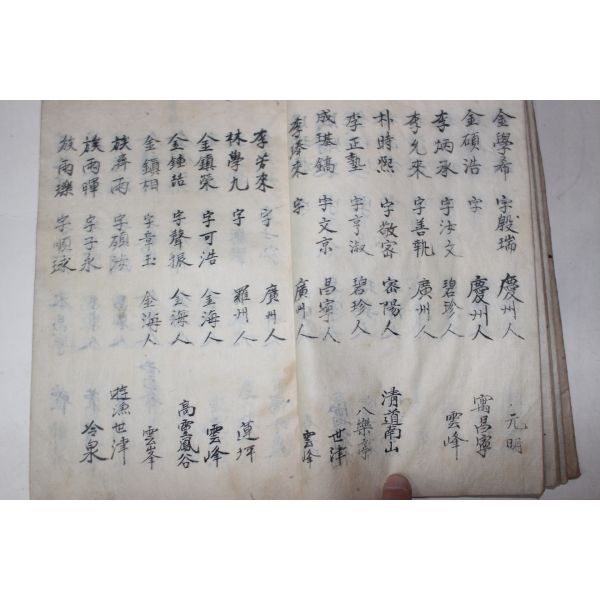 金學希 字殷瑞 慶州人 元明
金碩浩 字 慶州人 寓昌寧
李炳承 字汝文 碧珍人 雲峰
李允來 字善執 廣州人
朴時熙 字敬富 密陽人 清道南山
李正塾 字亨淑 碧珍人 八樂亭
成基鎬 字文京 昌寧人 世津
李 來 字 廣州人 雲峰
李若來 字 廣州人
林學九 字 羅州人 道坪
金鎮榮 字可浩 金海人 雲峰
金鍾誥 字聲振 金海人 高靈鳳谷
金鎮相 字章玉 金海人 雲峯
族 雨 字碩 世津
族雨暉 字子永 冷泉
族雨瓅 字順